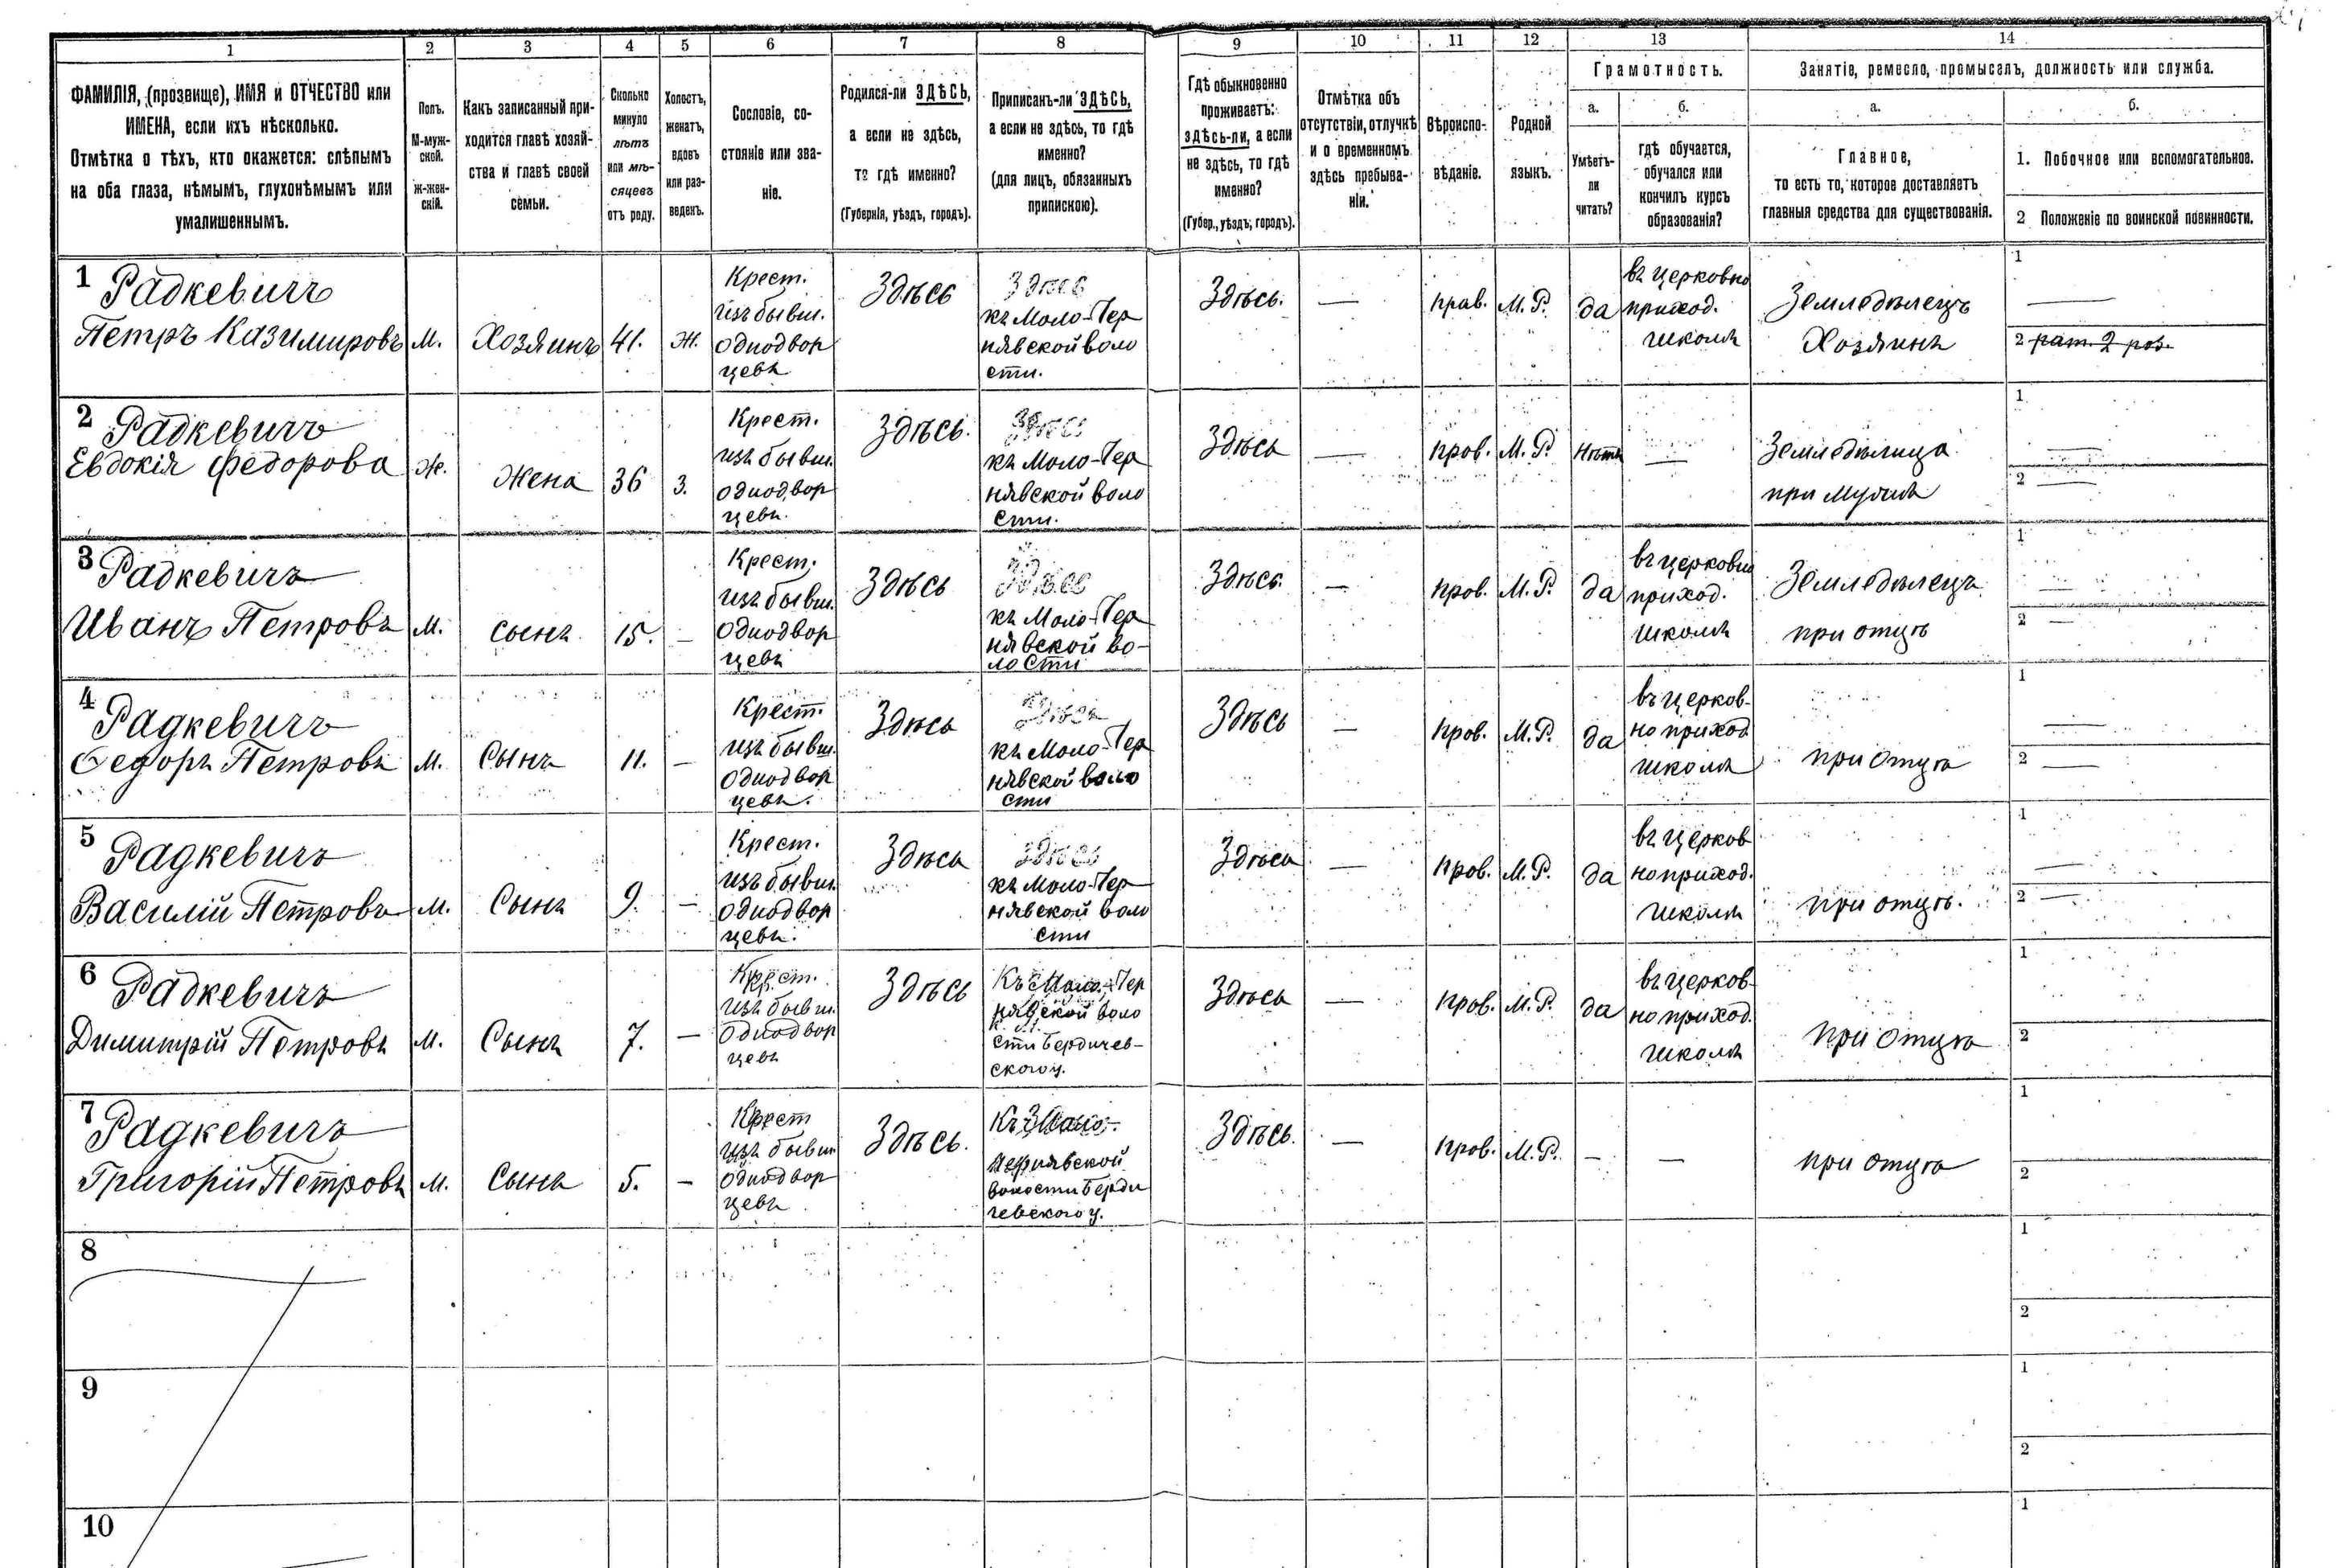 1 2 3 4 5 6 7 8 9 10 11 12 13 14
ФАМИЛІЯ, (прозвище), ИМЯ и ОТЧЕСТВО или
ИМЕНА, если ихъ нѣсколько.
Отмѣтка о тѣхъ, кто окажется: слѣпымъ
на оба глаза, нѣмымъ, глухонѣмымъ или
умалишеннымъ.
Полъ.
М-муж-
ской.
Ж-жен-
скій.
Какъ записанный при-
ходится главѣ хозяй-
ства и главѣ своей
семьи.
Сколько
минуло
лѣтъ
или мѣ-
сяцевъ
отъ роду.
Холостъ,
женатъ,
вдовъ
или раз-
веденъ.
Сословіе, со-
стояніе или зва-
ніе.
Родился-ли ЗДѢСЬ,
а если не здѣсь,
то гдѣ именно?
(Губернія, уѣздъ, городъ).
Приписанъ-ли ЗДѢСЬ,
а если не здѣсь, то гдѣ
именно?
(для лицъ, обязанныхъ
припискою).
Гдѣ обыкновенно
проживаетъ:
здѣсь-ли, а если
не здѣсь, то гдѣ
именно?
(Губер., уѣздъ, городъ).
Отмѣтка объ
отсутствіи, отлучкѣ
и о временномъ
здѣсь пребыва-
ніи.
Вѣроиспо-
вѣданіе.
Родной
языкъ.
Грамотность.
а.
Умѣетъ-
ли
читать?
б.
гдѣ обучается,
обучался или
кончилъ курсъ
образованія?
Занятіе, ремесло, промыселъ, должность или служба.
а.
Главное,
то есть то, которое доставляетъ
главныя средства для существованія.
б.
1. Побочное или вспомогательное.
2 Положеніе по воинской повинности.
1
Радкевичъ
Петръ Казимировъ
М.
Хозяинъ
41.
Ж.
Крест.
изъ бывш.
однодвор
цевъ
Здѣсь
Здѣсь
къ Мало-Чер
нявской воло
сти.
Здѣсь.
—
прав.
М. Р.
да
въ церковно
приход.
школѣ
Земледѣлецъ
Хозяинъ
1 —
2 рат. 2 раз.
2
Радкевичъ
Евдокія Федорова
Ж.
Жена
36
З.
Крест.
изъ бывш.
однодвор
цевъ.
Здѣсь.
Здѣсь
къ Мало-Чер
нявской воло
сти.
Здѣсь
—
прав.
М. Р.
Нѣтъ
—
Земледѣлица
при мужѣ
1 —
2 —
3
Радкевичъ
Иванъ Петровъ
М.
сынъ
15.
—
Крест.
изъ бывш.
однодвор
цевъ
Здѣсь
Здѣсь
къ Мало-Чер
нявской во-
лости
Здѣсь
—
прав.
М. Р.
да
въ церковно
приход.
школѣ
Земледѣлецъ
при отцѣ
1 —
2 —
4
Радкевичъ
Ѳедоръ Петровъ
М.
Сынъ
11.
—
Крест.
изъ бывш.
однодвор
цевъ.
Здѣсь
Здѣсь
къ Мало-Чер
нявской воло
сти
Здѣсь
—
прав.
М. Р.
да
въ церков-
но приход
школѣ
при отцѣ
1 —
2 —
5
Радкевичъ
Василій Петровъ
М.
Сынъ
9.
—
Крест.
изъ бывш.
однодвор
цевъ.
Здѣсь
Здѣсь
къ Мало-Чер
нявской воло
сти
Здѣсь
—
прав.
М. Р.
да
въ церков
но приход.
школѣ
при отцѣ.
1 —
2 —
6
Радкевичъ
Димитрій Петровъ
М.
Сынъ
7.
—
Крест.
изъ бывш.
однодвор
цевъ
Здѣсь
Къ Мало-Чер
нявской воло
сти Бердичев-
скаго у.
Здѣсь
—
прав.
М. Р.
да
въ церков-
но приход.
школѣ
при отцѣ
1
2
7
Радкевичъ
Григорій Петровъ
М.
Сынъ
5.
—
Крест
изъ бывш
однодвор
цевъ
Здѣсь.
Къ Мало-
Чернявской
волости Берди
чевскаго у.
Здѣсь.
—
прав.
М. Р.
—
—
при отцѣ
1
2
8
1
2
9
1
2
10
1